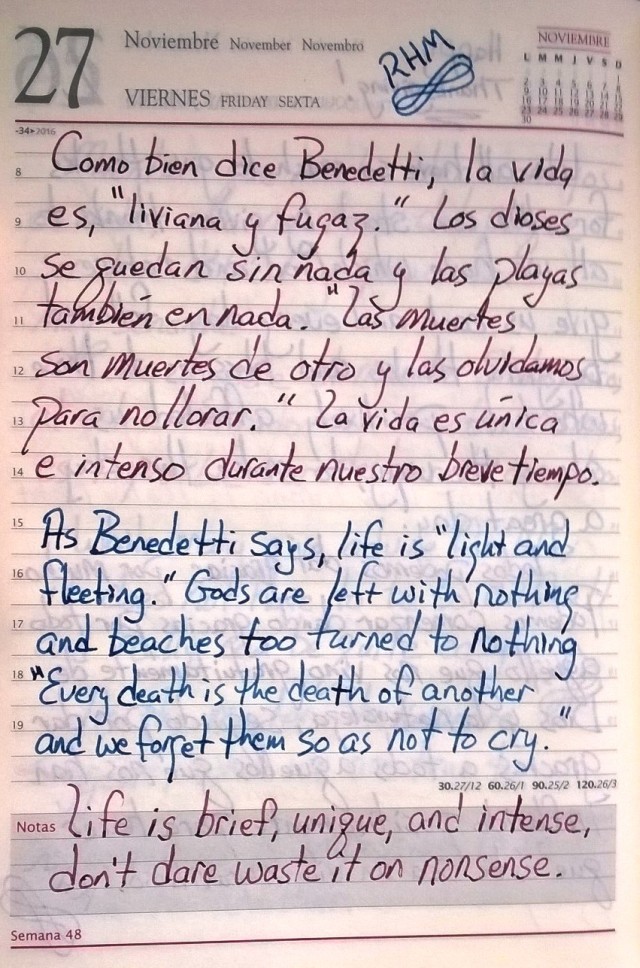 27
Noviembre November Novembro
VIERNES FRIDAY SEXTA
RHM
NOVIEMBRE
L M M J V S D
-34▸2016
8 Como bien dice Benedetti, la vida
9 es, "liviana y fugaz." Los dioses
10 se quedan sin nada y las playas
11 también en nada. "Las muertes
12 son muertes de otro y las olvidamos
13 para no llorar." La vida es única
14 e intenso durante nuestro breve tiempo.
15 As Benedetti says, life is "light and
16 fleeting." Gods are left with nothing
17 and beaches too turned to nothing
18 "Every death is the death of another
19 and we forget them so as not to cry."
30.27/12 60.26/1 90.25/2 120.26/3
Notas Life is brief, unique, and intense,
don't dare waste it on nonsense.
Semana 48